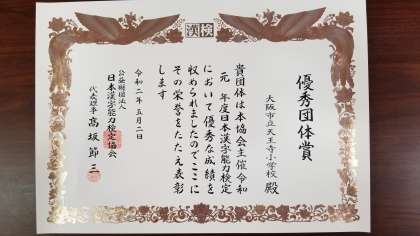 漢検
優秀団体賞
大阪市立天王寺小学校 殿
貴団体は本協会主催令和
元年度日本漢字能力検定
において優秀な成績を
収められましたのでここに
その栄誉をたたえ表彰
します
令和二年五月二日
公益財団法人
日本漢字能力検定協会
代表理事 髙坂節三